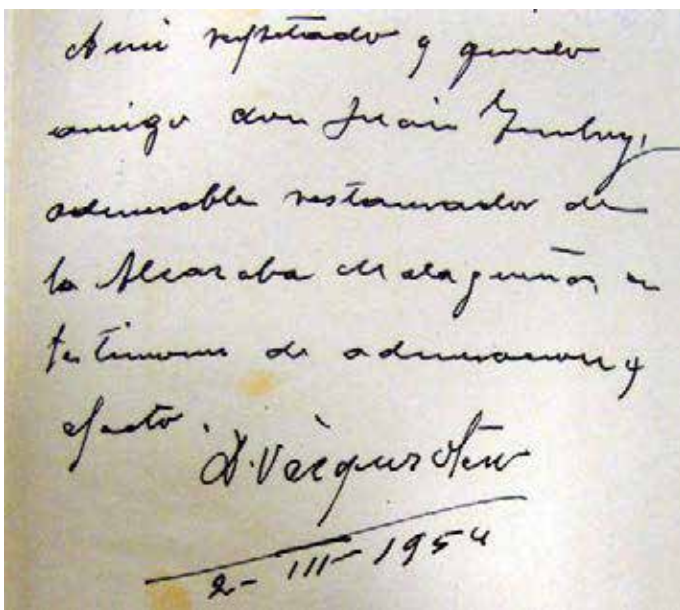 A mi respetado y querido
amigo don Juan Temboury,
admirable restaurador de
la Alcazaba malagueña, en
testimonio de admiracion y
afecto.
D. Vázquez Otero
2-III-1954